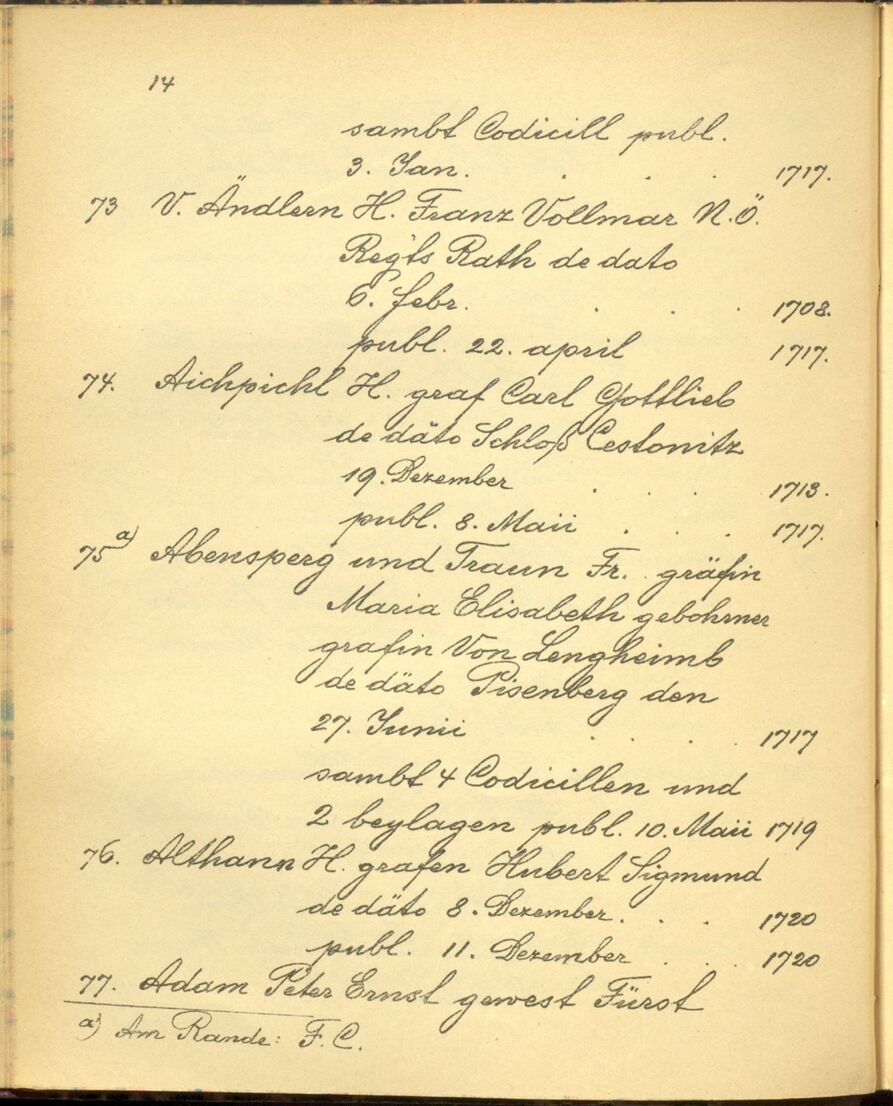 14
sambt Codicill publ.
3. Jan. . . . 1717.
73 V. Ändlern H. Franz Vollmar N.Ö.
Regts Rath de dato
6. febr. . . . 1708.
publ. 22. april 1717.
74. Aichpichl H. graf Carl Gottlieb
de däto Schloß Cestonitz
19. Dezember . . . 1713.
publ. 8. Maii . . . 1717.
75 a) Abensperg und Traun Fr. gräfin
Maria Elisabeth gebohrner
grafin Von Lengheimb
de däto Pisenberg den
27. Junii . . . 1717
sambt 4 Codicillen und
2 beylagen publ. 10. Maii 1719
76. Althann H. grafen Hubert Sigmund
de däto 8. Dezember . . . 1720
publ. 11. Dezember . . . 1720
77. Adam Peter Ernst gewest Fürst
a) Am Rande: F.C.